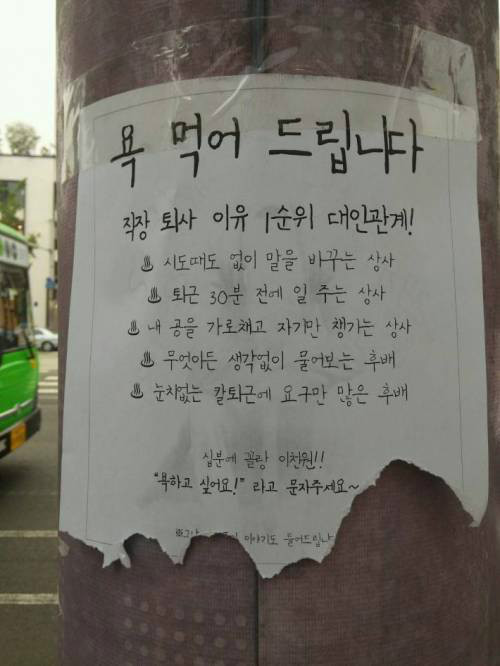 욕 먹어 드립니다
직장 퇴사 이유 1순위 대인관계!
♨ 시도때도 없이 말을 바꾸는 상사
♨ 퇴근 30분 전에 일 주는 상사
♨ 내 공을 가로채고 자기만 챙기는 상사
♨ 무엇이든 생각없이 물어보는 후배
♨ 눈치없는 칼퇴근에 요구만 많은 후배
십분에 꼴랑 이천원!!
"욕하고 싶어요!" 라고 문자주세요~
이야기도 들어드립니